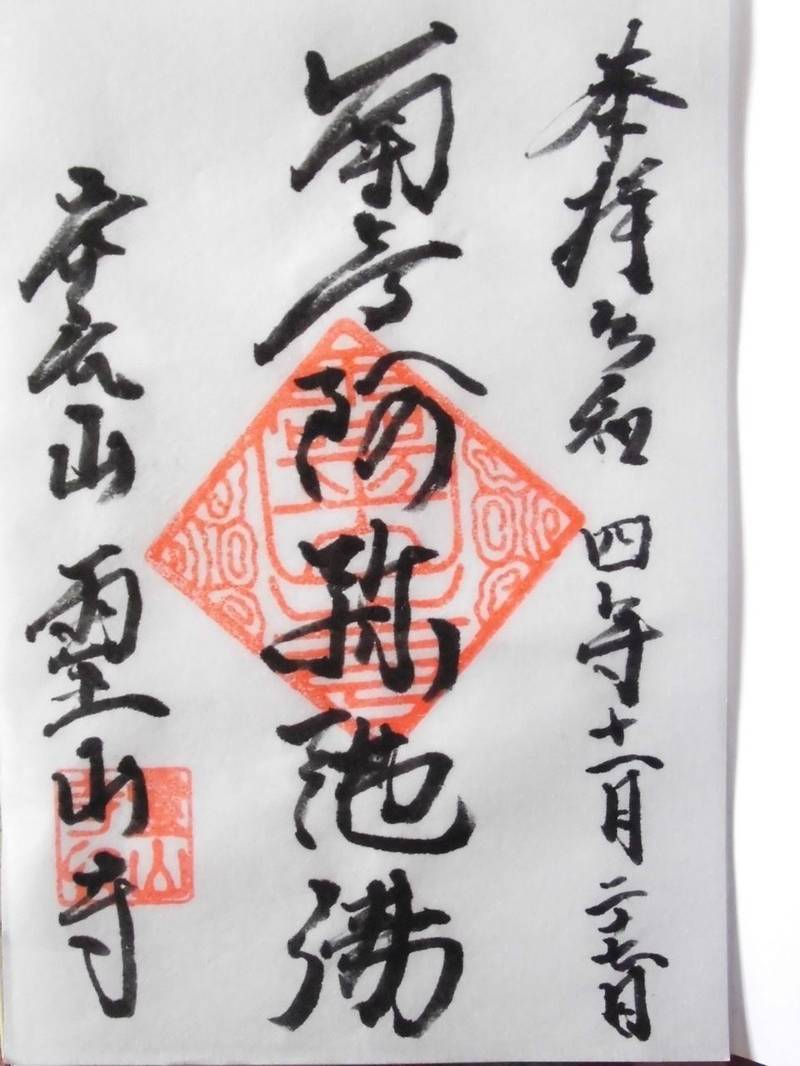 奉拝 令和四年十一月二十七日
南無阿弥陀佛
山 霊山寺